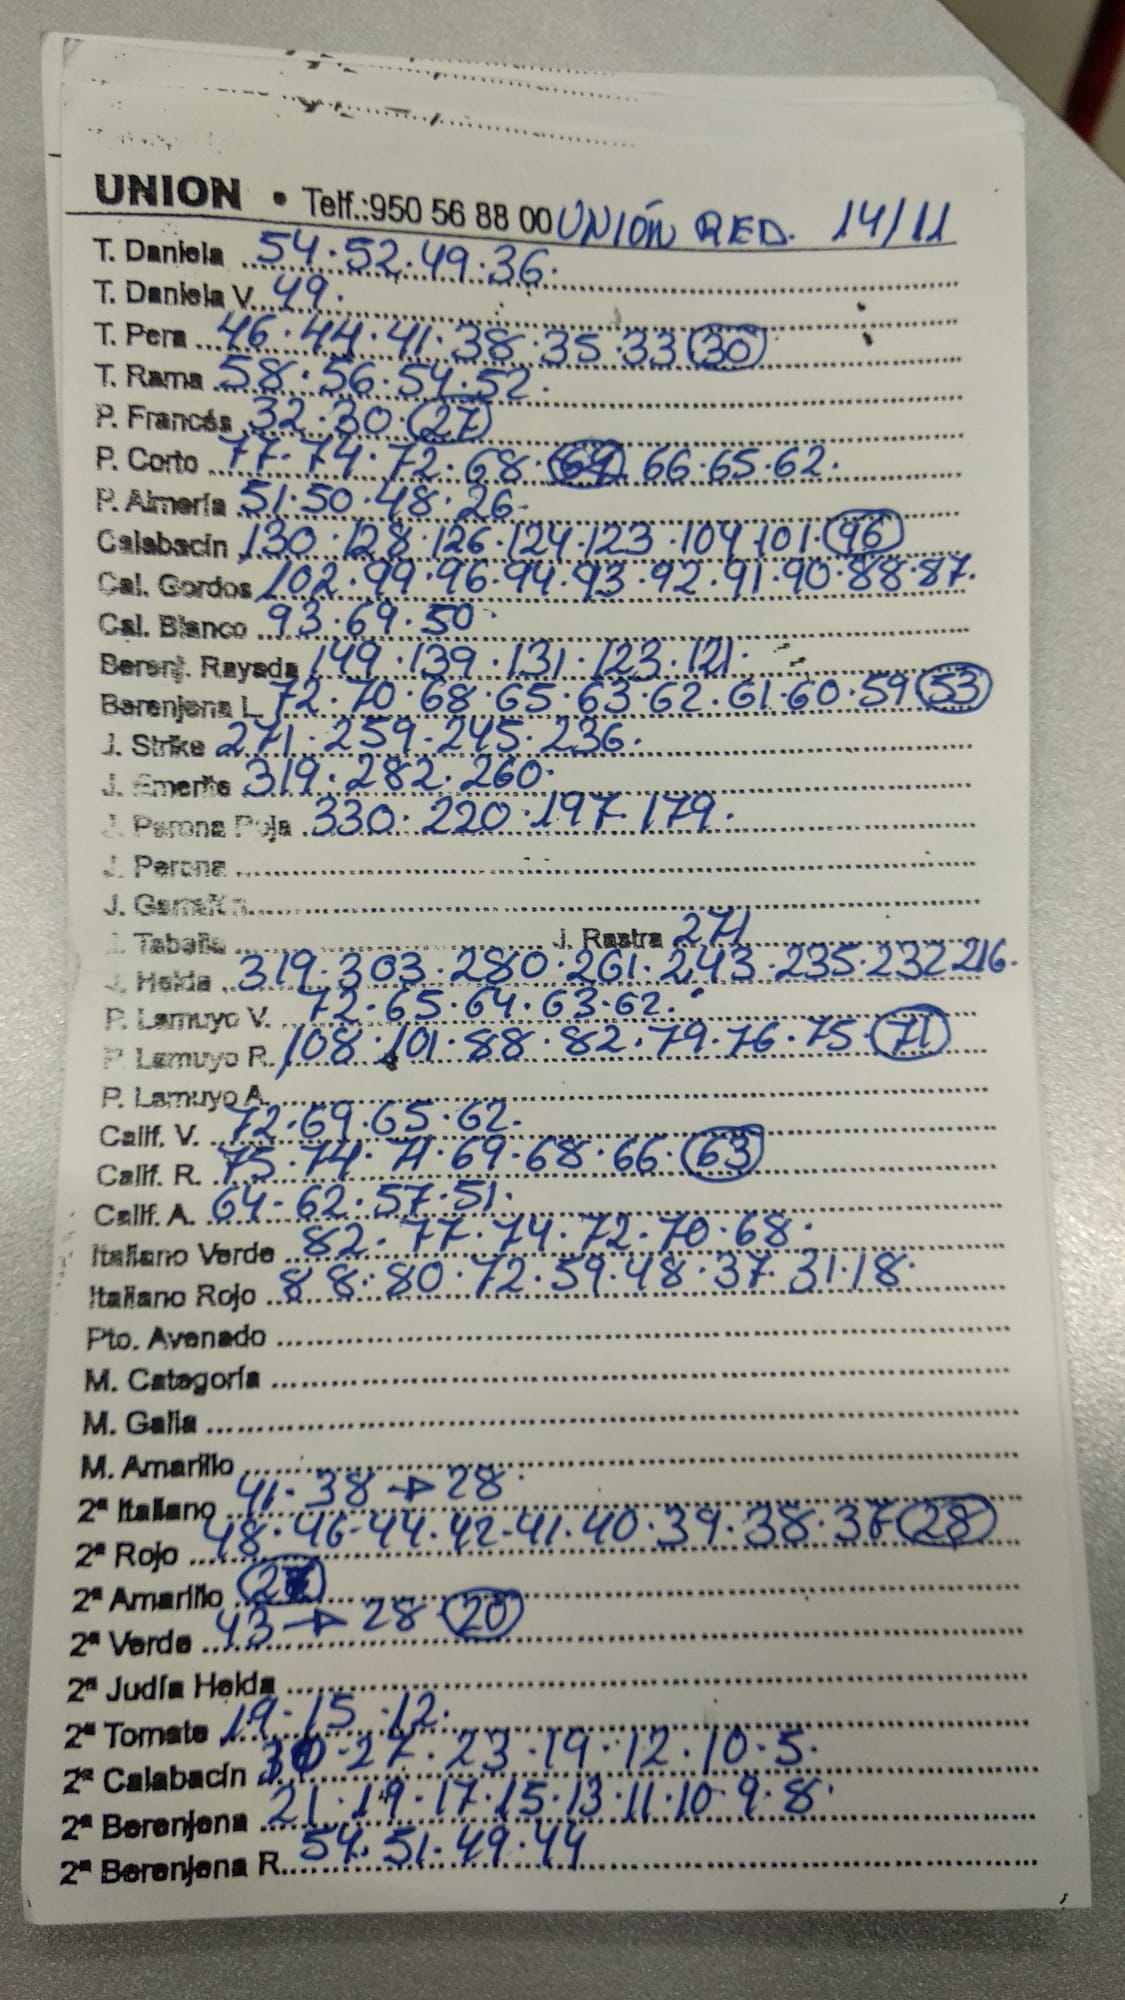 UNION • Telf.:950 56 88 00 UNIÓN RED. 14/11
T. Daniela 54·52·49·36·
T. Daniela V. 49·
T. Pera 46·44·41·38·35·33 (30)
T. Rama 58·56·54·52·
P. Francés 32·30·(27)
P. Corto 77·74·72·68·(67) 66·65·62·
P. Almería 51·50·48·26·
Calabacín 130·128·126·124·123·104·101·(96)
Cal. Gordos 102·99·96·94·93·92·91·90·88·87·
Cal. Blanco 93·69·50·
Berenj. Rayada 149·139·131·123·121·
Berenjena L. 72·70·68·65·63·62·61·60·59 (53)
J. Strike 271·259·245·236·
J. Emerite 319·282·260·
J. Perona Roja 330·220·197·179·
J. Perona
J. Garrafón
J. Tabella J. Rastra 271
J. Helda 319·303·280·261·243·235·232 216·
P. Lamuyo V. 72·65·64·63·62·
P. Lamuyo R. 108·101·88·82·79·76·75·(71)
P. Lamuyo A.
Calif. V. 72·69·65·62·
Calif. R. 75·74·71·69·68·66·(63)
Calif. A. 64-62·57·51·
Italiano Verde 82·77·74·72·70·68·
Italiano Rojo 88·80·72·59·48·37·31·18·
Pto. Avenado
M. Categoría
M. Galia
M. Amarillo
2ª Italiano 41·38 → 28·
2ª Rojo 48·46-44·42-41·40·39·38·37 (28)
2ª Amarillo
2ª Verde 43 → 28 (20)
2ª Judía Helda
2ª Tomate 19·15·12·
2ª Calabacín 30·27·23·19·12·10·5·
2ª Berenjena 21·19·17·15·13·11·10·9·8·
2ª Berenjena R. 54·51·49·44